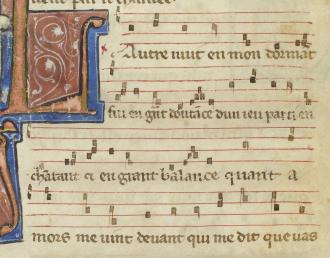 LAutre nuit en mon dormãt
fui en gñt doutãce dun ieu parti en
chãtant et en grant balance quant a
mors me uint deuant qui me dit que uas